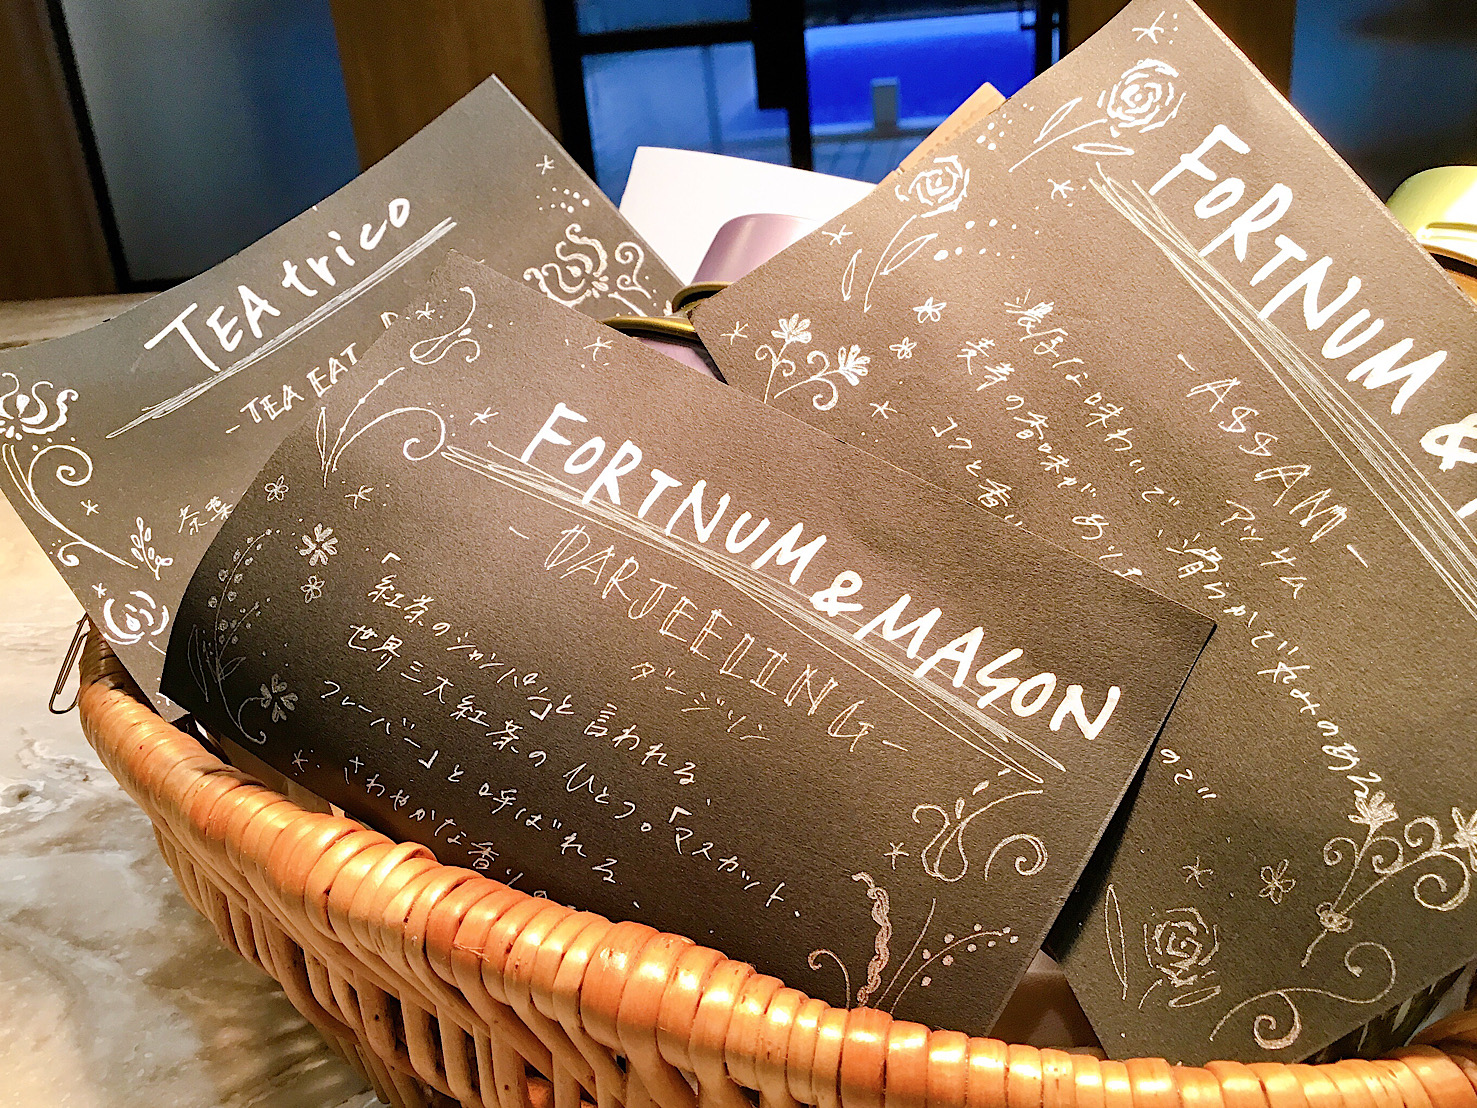 TEA trico
- TEA EAT
茶葉
FORTNUM & MASON
- DARJEELING -
ダージリン
「紅茶のシャンパン」と言われる、
世界三大紅茶のひとつ。「マスカット
フレーバー」と呼ばれる、
さわやかな香りの
FORTNUM &
- ASSAM -
アッサム
濃厚な味わいで、滑らかで深みのある
麦芽の香味があり
コクと香い
ので